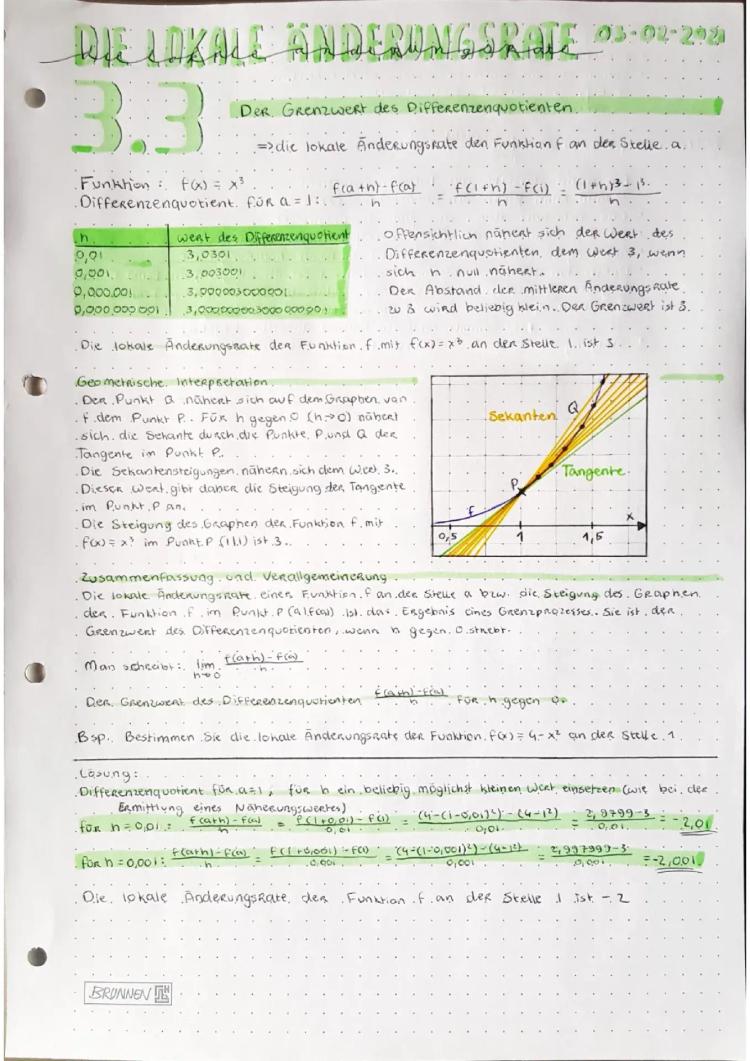 DIE LOKALE ÄNDERUNGSRATE 03-02-2021
die lokale änderungsrate
3.3
Der Grenzwert des Differenzenquotienten
=> die lokale Änderungsrate der Funktion f an der Stelle a.
Funktion: f(x) = x³
Differenzenquotient für a = 1: f(a+h)-f(a) / h = f(1+h)-f(1) / h = (1+h)³-1³ / h
h Wert des Differenzenquotient
0,01 3,0301
0,001 3,003001
0,000.001 3,000003000001
0,000.000.001 3,000000003000000001
Offensichtlich nähert sich der Wert des
Differenzenquotienten dem Wert 3, wenn
sich h null nähert.
Der Abstand der mittleren Änderungsrate
zu 3 wird beliebig klein. Der Grenzwert ist 3.
Die lokale Änderungsrate der Funktion f mit f(x) = x³ an der Stelle 1 ist 3
Geometrische Interpretation
Der Punkt Q nähert sich auf dem Graphen von
f dem Punkt P. Für h gegen 0 (h→0) nähert
sich die Sekante durch die Punkte P und Q der
Tangente im Punkt P.
Die Sekantensteigungen nähern sich dem Wert 3.
Dieser Wert gibt daher die Steigung der Tangente
im Punkt P an.
Die Steigung des Graphen der Funktion f mit
f(x) = x³ im Punkt P (1|1) ist 3.
Sekanten
Q
Tangente
P
f
x
0,5 1 1,5
Zusammenfassung und Verallgemeinerung
Die lokale Änderungsrate einer Funktion f an der Stelle a bzw. die Steigung des Graphen
der Funktion f im Punkt P (a|f(a)) ist das Ergebnis eines Grenzprozesses. Sie ist der
Grenzwert des Differenzenquotienten, wenn h gegen 0 strebt.
Man schreibt: lim h→0 f(a+h)-f(a) / h
Der Grenzwert des Differenzenquotienten f(a+h)-f(a) / h für h gegen 0.
Bsp. Bestimmen Sie die lokale Änderungsrate der Funktion f(x) = 4-x² an der Stelle 1.
Lösung:
Differenzenquotient für a=1, für h ein beliebig möglichst kleinen Wert einsetzen (wie bei der
Ermittlung eines Näherungswertes)
für h = 0,01: f(a+h)-f(a) / h = f(1+0,01)-f(1) / 0,01 = (4-(1-0,01)²)-(4-1²) / 0,01 = 2,9799-3 / 0,01 = -2,01
für h = 0,001: f(a+h)-f(a) / h = f(1+0,001)-f(1) / 0,001 = (4-(1-0,001)²)-(4-1²) / 0,001 = 2,997999-3 / 0,001 = -2,001
Die lokale Änderungsrate der Funktion f an der Stelle 1 ist -2
BRUNNEN